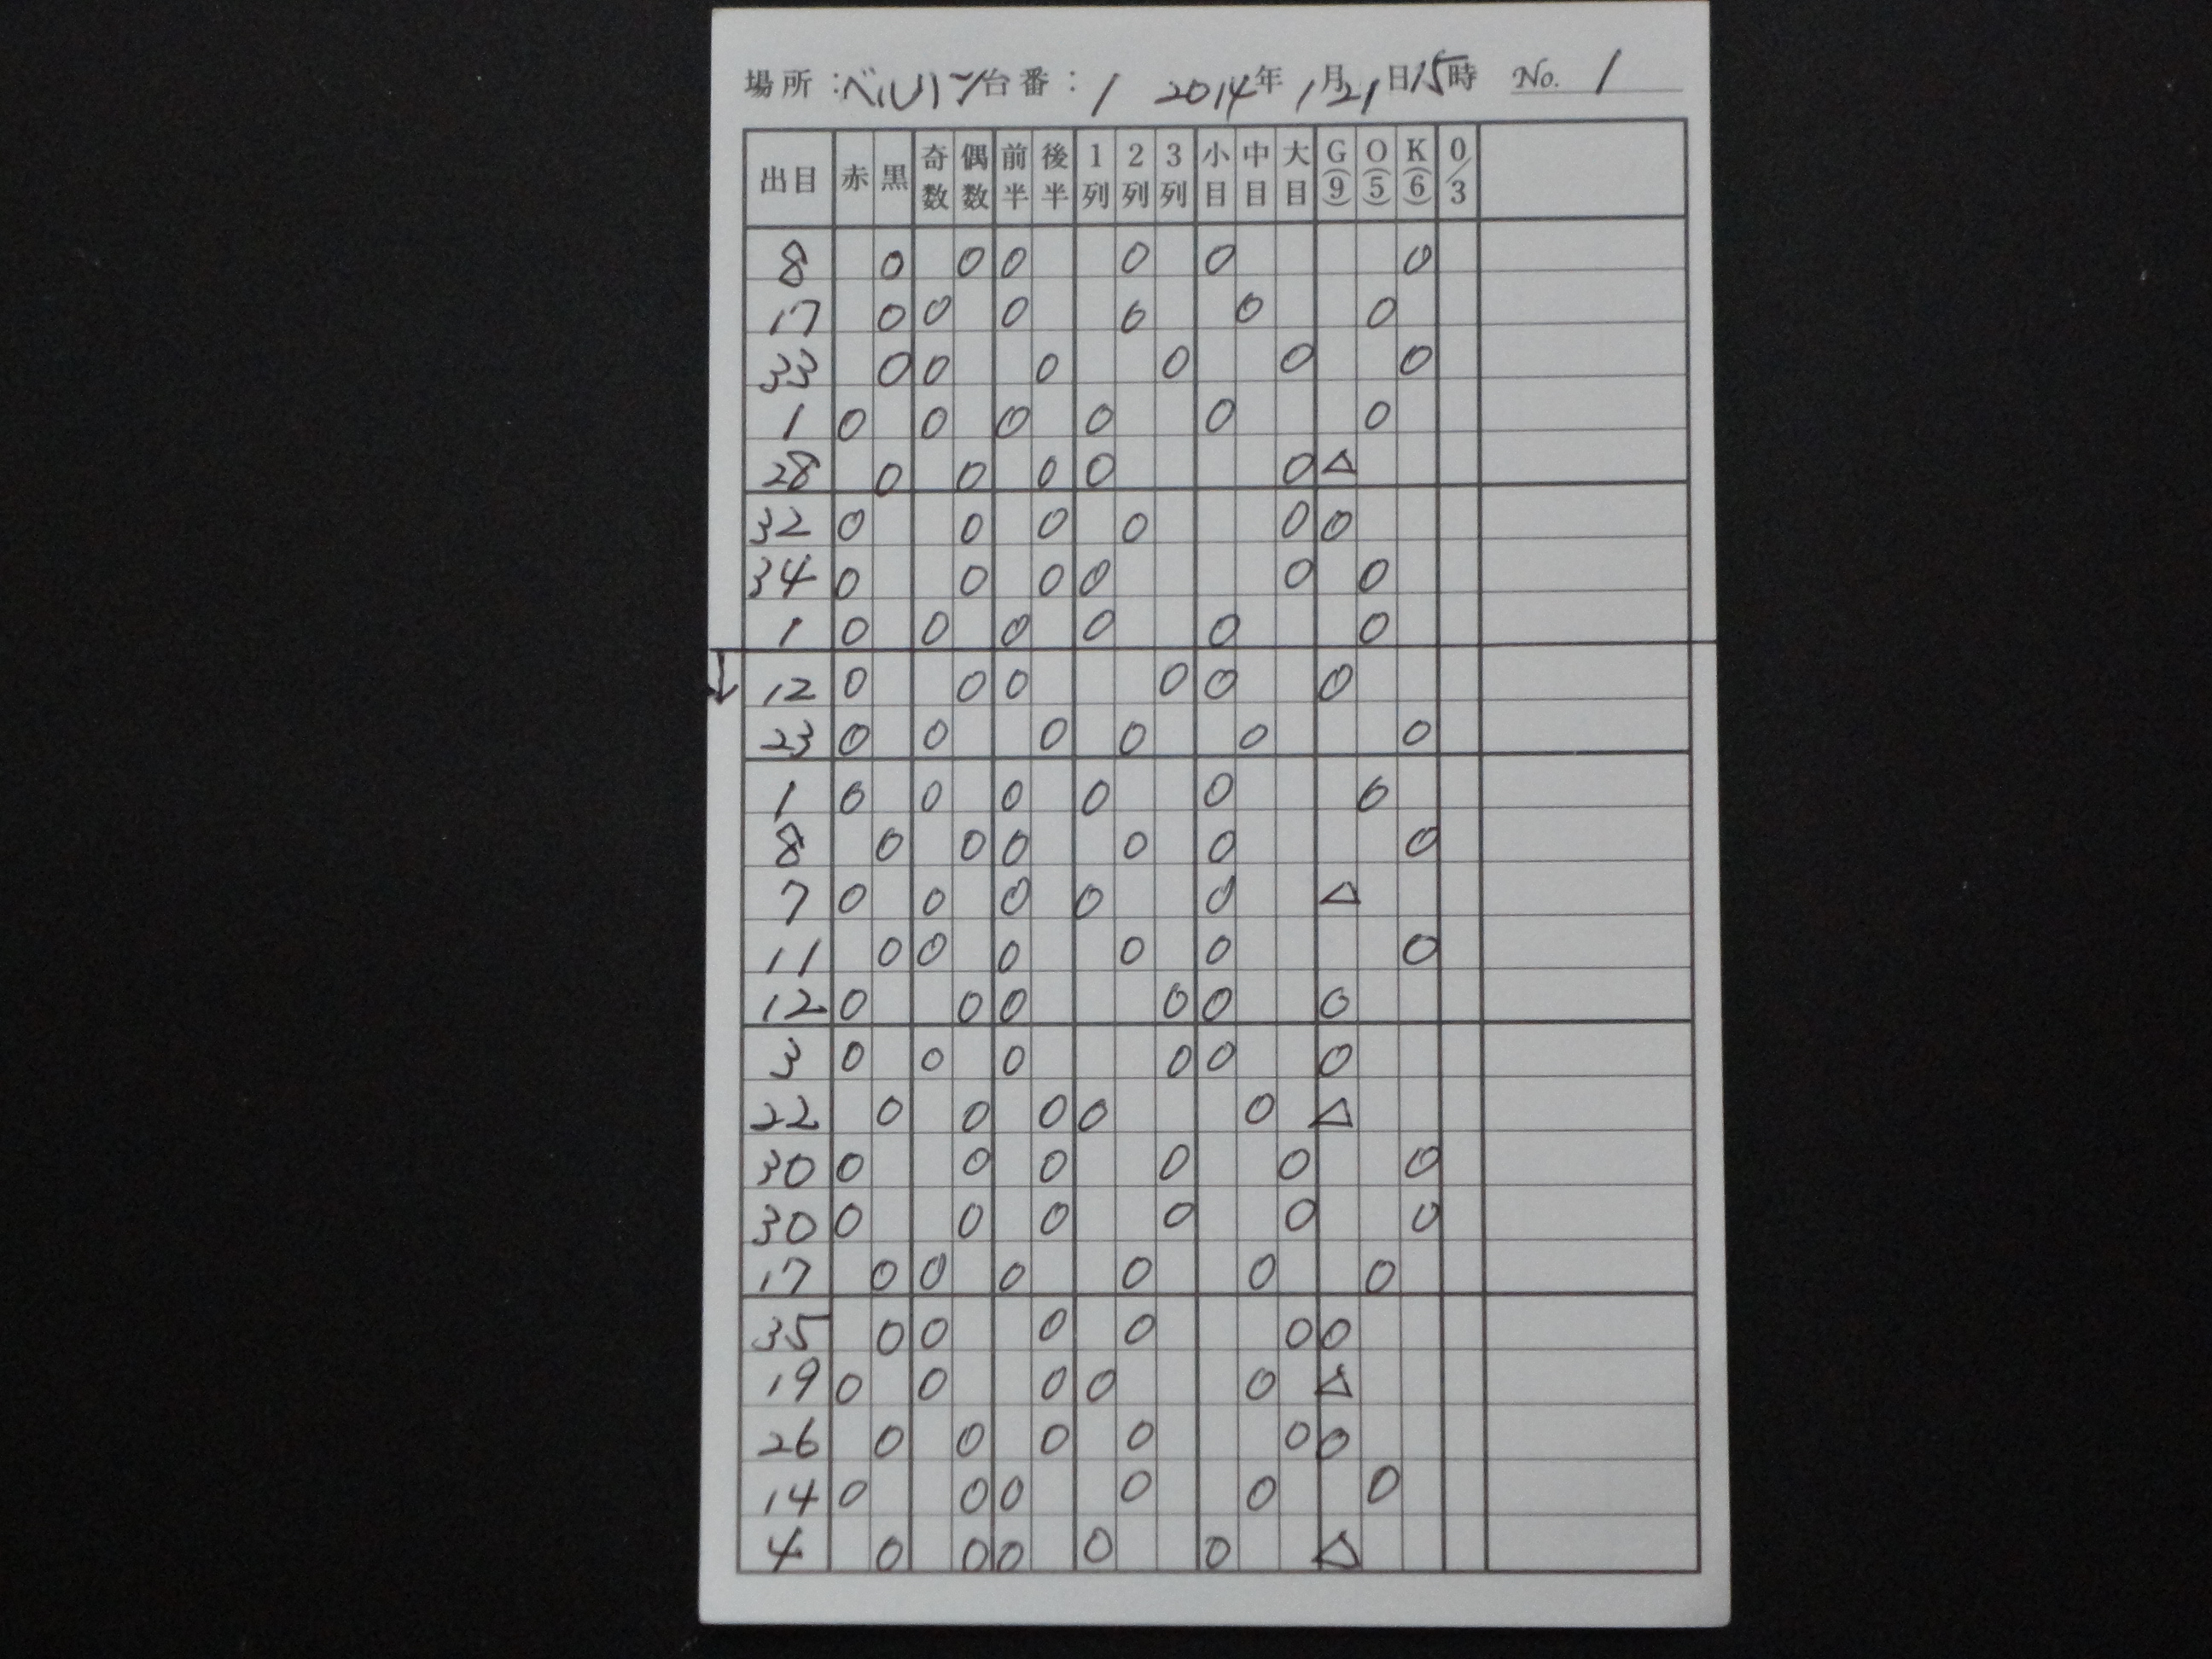 場所:ベルリン台番:1 2014年1月21日15時 No. 1
出目 赤 黒 奇数 偶数 前半 後半 1列 2列 3列 小目 中目 大目 G(9) O(5) K(6) 0/3
8 0 0 0 0 0 0
17 0 0 0 0 0 0
33 0 0 0 0 0 0
1 0 0 0 0 0 0
28 0 0 0 0 0 △
32 0 0 0 0 0 0
34 0 0 0 0 0 0
1 0 0 0 0 0 0
↓ 12 0 0 0 0 0 0
23 0 0 0 0 0 0
1 0 0 0 0 0 0
8 0 0 0 0 0 0
7 0 0 0 0 0 △
11 0 0 0 0 0 0
12 0 0 0 0 0 0
3 0 0 0 0 0 0
22 0 0 0 0 0 △
30 0 0 0 0 0 0
30 0 0 0 0 0 0
17 0 0 0 0 0 0
35 0 0 0 0 0 0
19 0 0 0 0 0 △
26 0 0 0 0 0 0
14 0 0 0 0 0 0
4 0 0 0 0 0 △